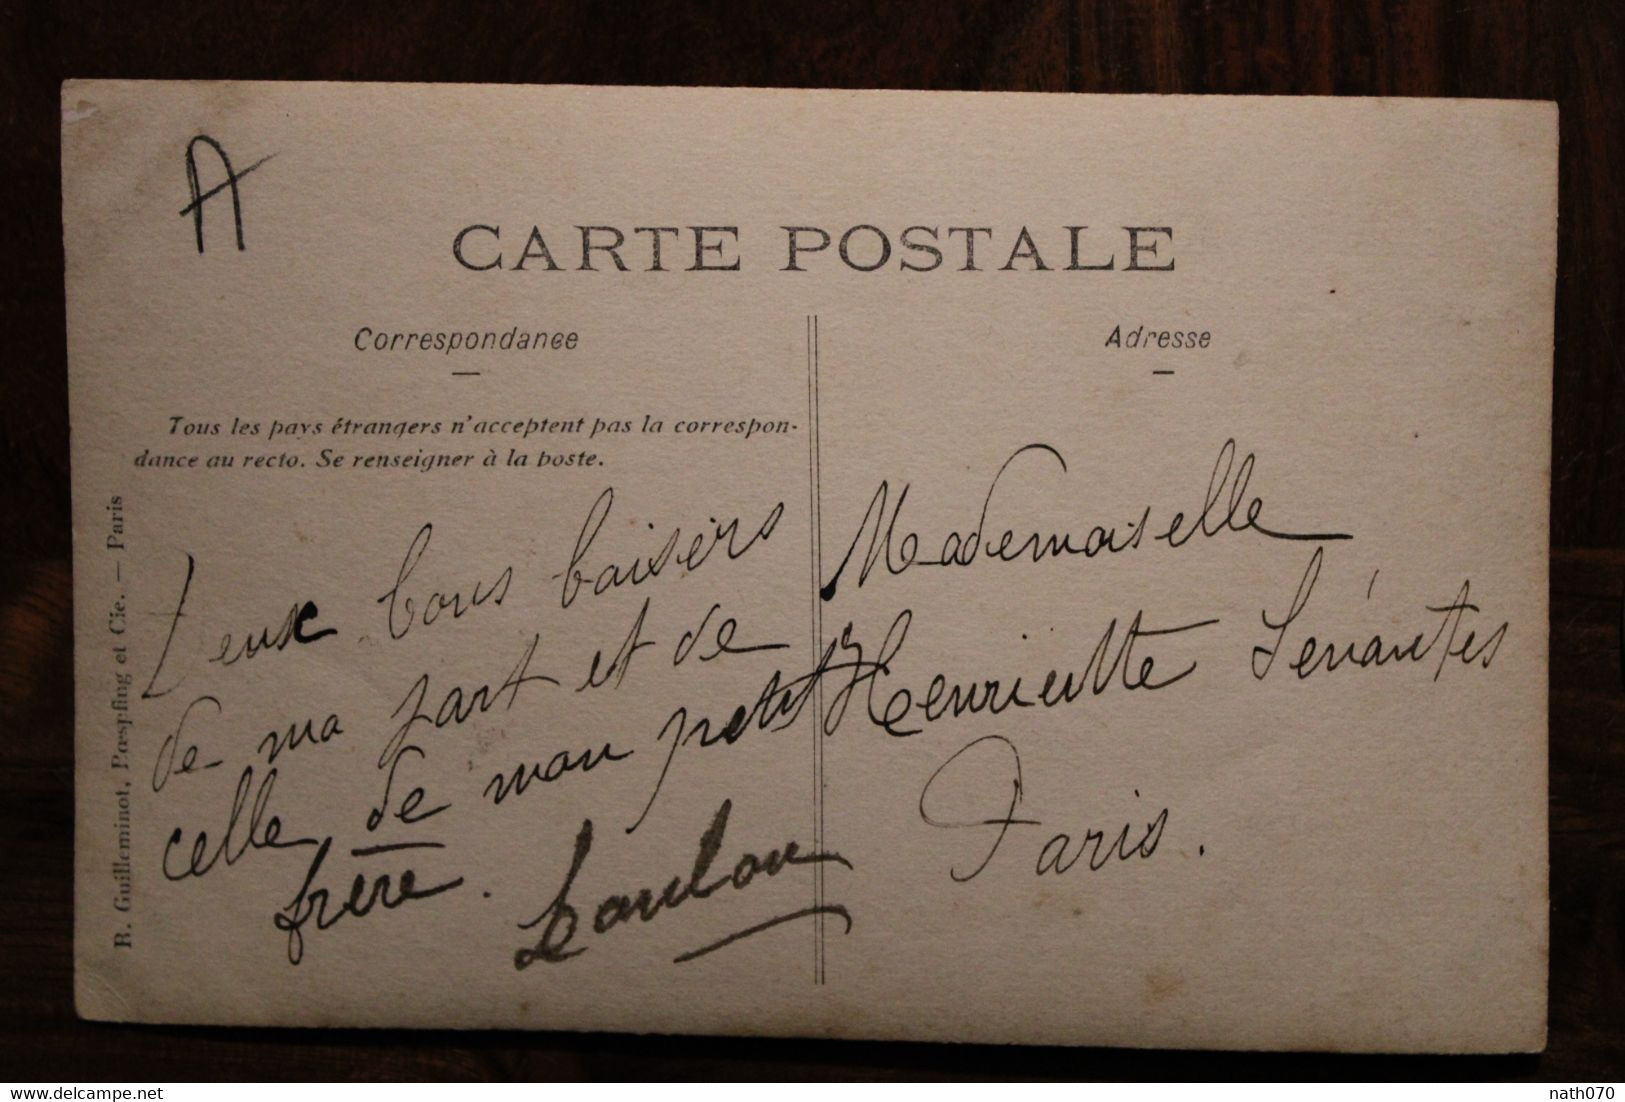 A
CARTE POSTALE
Correspondance
Tous les pays étrangers n'acceptent pas la correspon-
dance au recto. Se renseigner à la poste.
Deux bons baisers
de ma part et de
celle de mon petit
frère.
Loulou
Adresse
Mademoiselle
Henriette
Paris.
R. Guilleminot, Bœspflug et Cie. — Paris
nath070